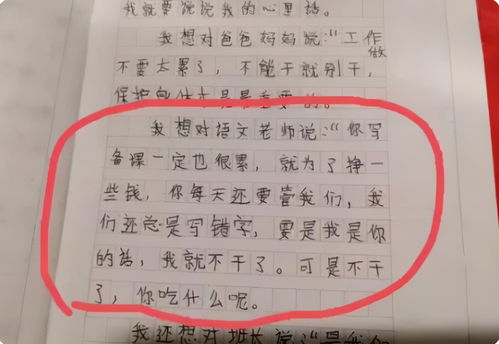 我就要说说我的心里话。
我想对爸爸妈妈说:“工作做
不要太累了,不能干就别干,
保护身体才是最重要的。
我想对语文老师说:“你写
备课一定也很累,就为了挣一
些钱,你每天还要管我们,我
们还总是写错字,要是我是你
的话,我就不干了。可是不干
了,你吃什么呢。
我还想对班长说:“是我们